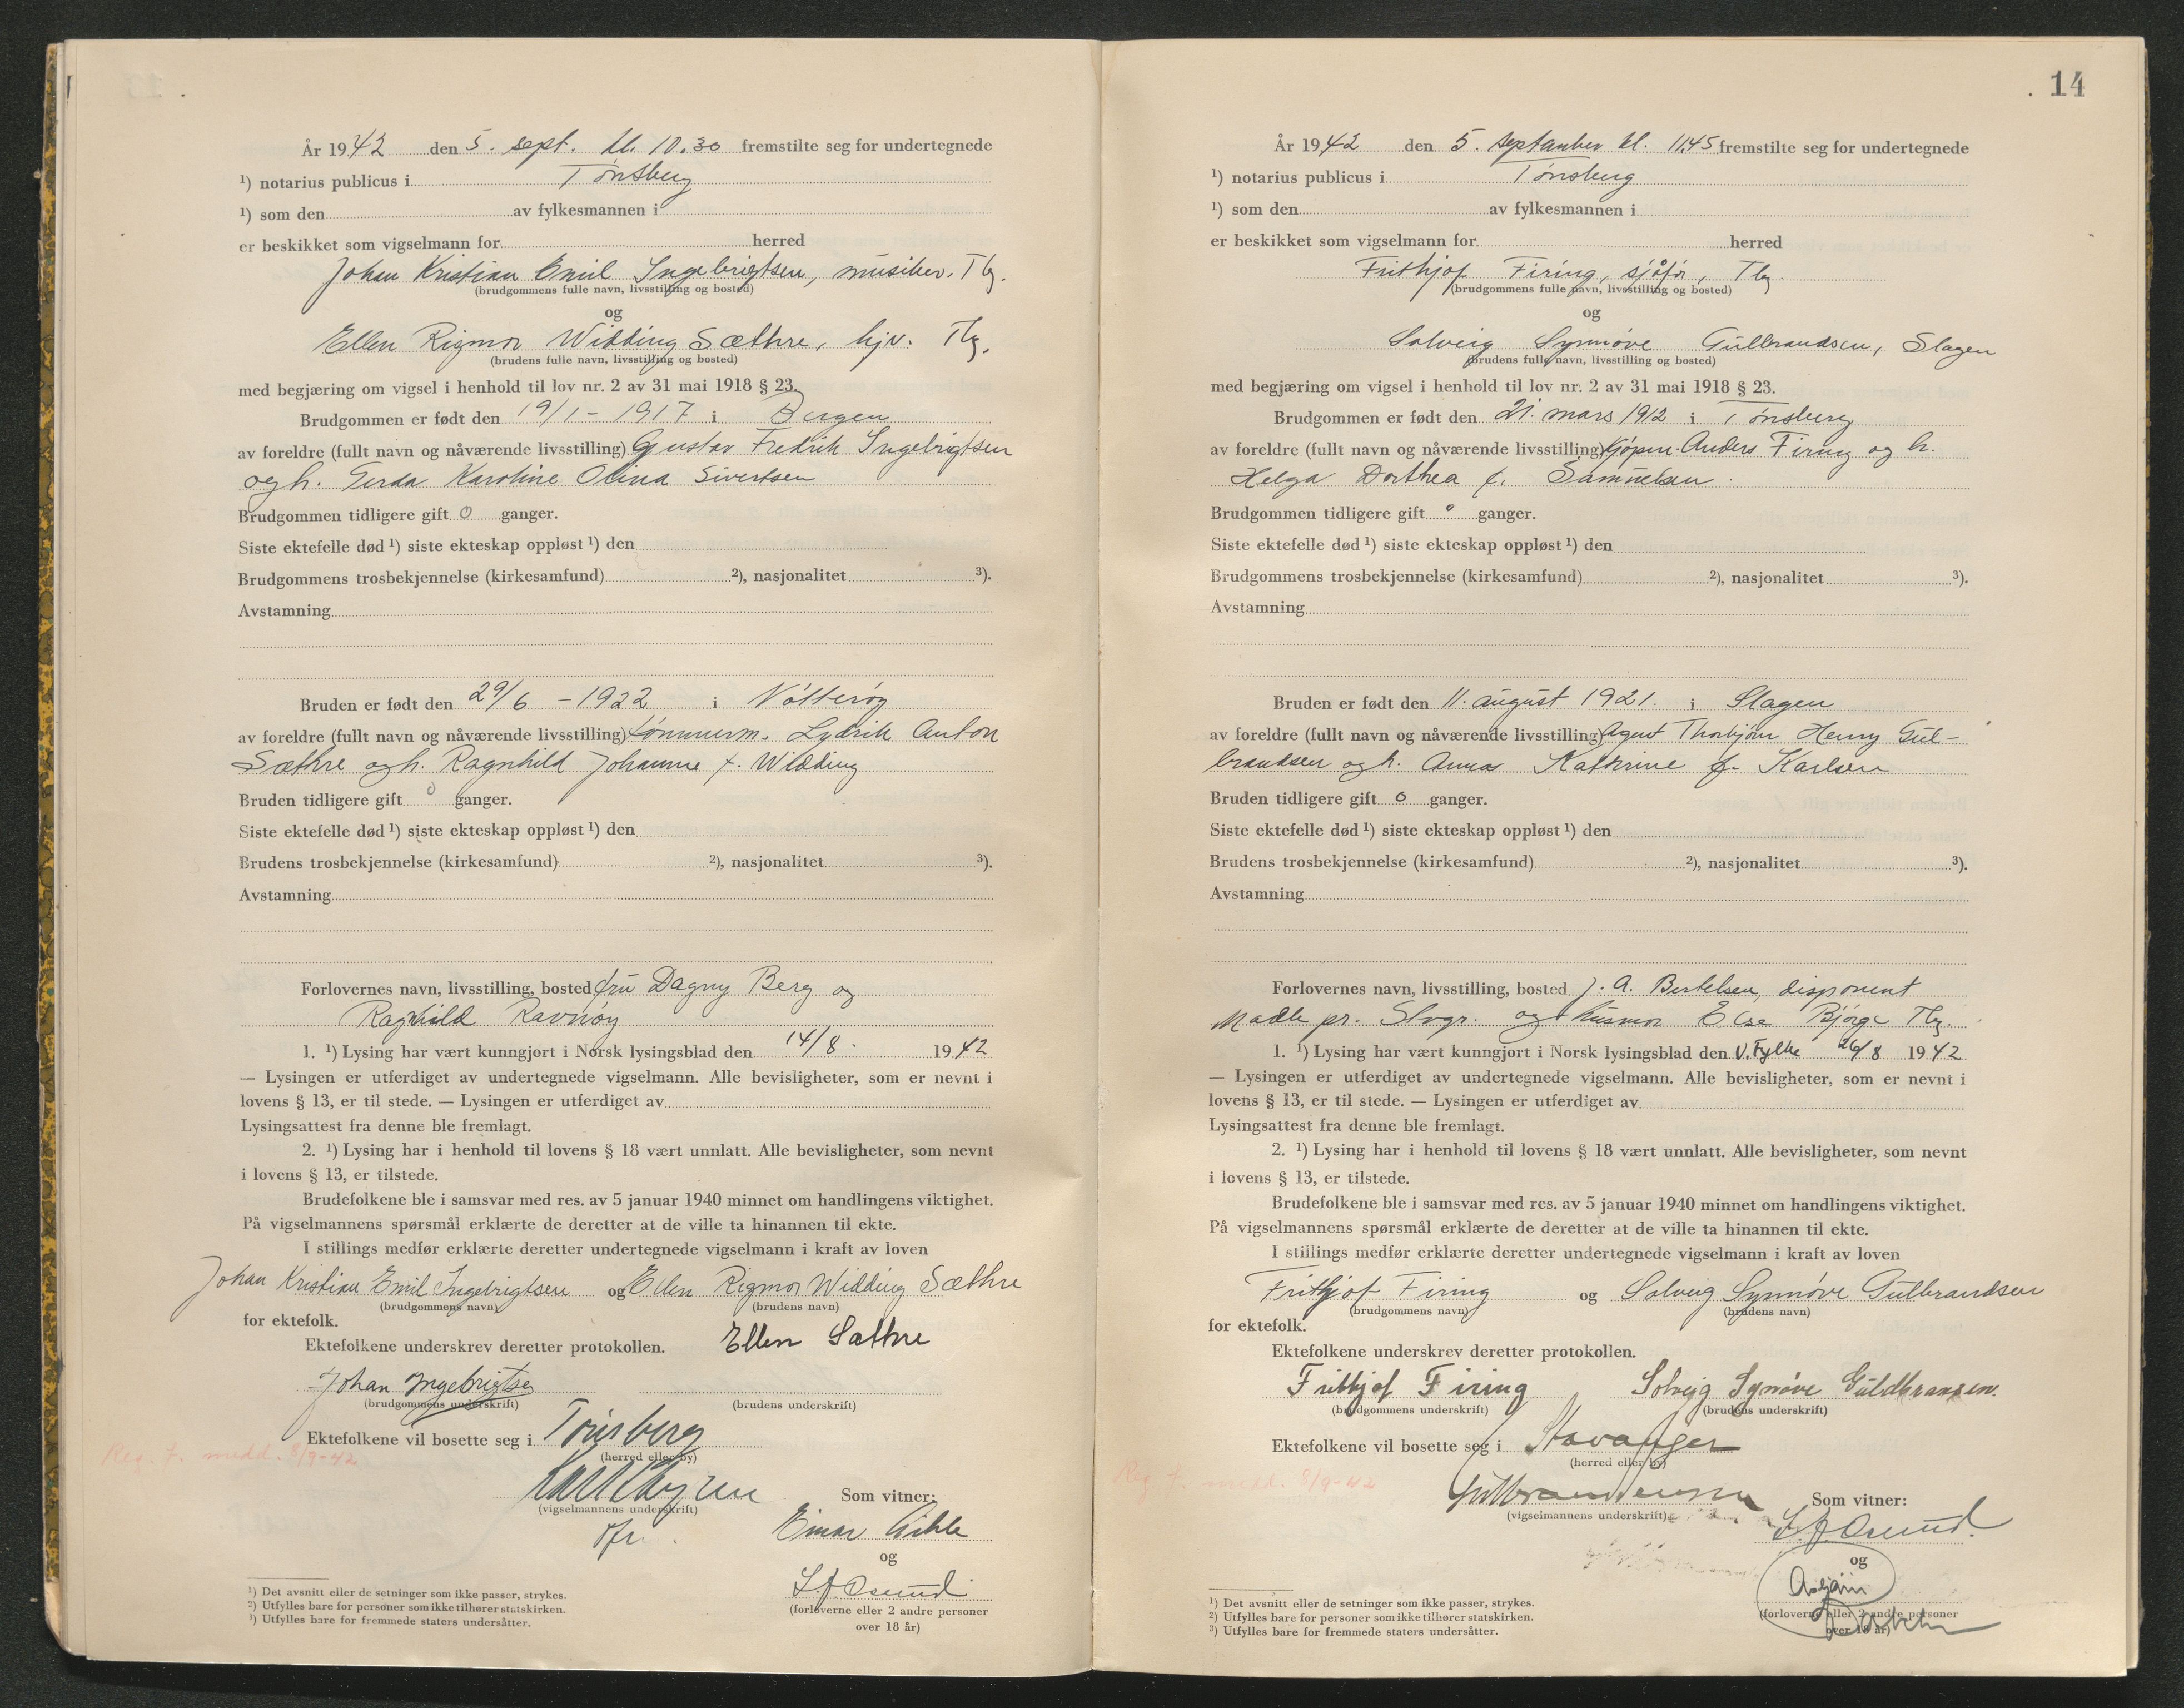 År 1942 den 5. sept. kl. 10.30 fremstilte seg for undertegnede
¹) notarius publicus i Tønsberg
¹) som den av fylkesmannen i
er beskikket som vigselmann for herred
Johan Kristian Emil Ingebrigtsen, musiker. Tbg.
(brudgommens fulle navn, livsstilling og bosted)
og
Ellen Rigmor Widding Sæthre, hjv. Tbg.
(brudens fulle navn, livsstilling og bosted)
med begjæring om vigsel i henhold til lov nr. 2 av 31 mai 1918 § 23.
Brudgommen er født den 19/1 - 1917 i Bergen
av foreldre (fullt navn og nåværende livsstilling) Gustav Fredrik Ingebrigtsen
og h. Gerda Karoline Olina Sivertsen
Brudgommen tidligere gift 0 ganger.
Siste ektefelle død ¹) siste ekteskap oppløst ¹) den
Brudgommens trosbekjennelse (kirkesamfund) ²), nasjonalitet ³).
Avstamning
Bruden er født den 29/6 - 1922 i Nøtterøy
av foreldre (fullt navn og nåværende livsstilling) tømmerm. Lydrik Anton
Sæthre og h. Ragnhild Johanne f. Widding
Bruden tidligere gift 0 ganger.
Siste ektefelle død ¹) siste ekteskap oppløst ¹) den
Brudens trosbekjennelse (kirkesamfund) ²), nasjonalitet ³).
Avstamning
Forlovernes navn, livsstilling, bosted fru Dagny Berg og
Ragnhild Ravnøy
1. ¹) Lysing har vært kunngjort i Norsk lysingsblad den 14/8. 1942
— Lysingen er utferdiget av undertegnede vigselmann. Alle bevisligheter, som er nevnt i
lovens § 13, er til stede. — Lysingen er utferdiget av
Lysingsattest fra denne ble fremlagt.
2. ¹) Lysing har i henhold til lovens § 18 vært unnlatt. Alle bevisligheter, som nevnt
i lovens § 13, er tilstede.
Brudefolkene ble i samsvar med res. av 5 januar 1940 minnet om handlingens viktighet.
På vigselmannens spørsmål erklærte de deretter at de ville ta hinannen til ekte.
I stillings medfør erklærte deretter undertegnede vigselmann i kraft av loven
Johan Kristian Emil Ingebrigtsen og Ellen Rigmor Widding Sæthre
(brudgommens navn) (brudens navn)
for ektefolk.
Ektefolkene underskrev deretter protokollen. Ellen Sæthre
Johan Ingebrigtsen
(brudgommens underskrift) (brudens underskrift)
Ektefolkene vil bosette seg i Tønsberg
(herred eller by)
Reg. f. medd. 8/9-42
Som vitner:
(vigselmannens underskrift)
Einar
og
(forloverne eller 2 andre personer
over 18 år)
¹) Det avsnitt eller de setninger som ikke passer, strykes.
²) Utfylles bare for personer som ikke tilhører statskirken.
³) Utfylles bare for fremmede staters undersåtter.
14
År 1942 den 5. september kl. 1145 fremstilte seg for undertegnede
¹) notarius publicus i Tønsberg
¹) som den av fylkesmannen i
er beskikket som vigselmann for herred
Frithjof Firing, sjåfør, Tbg.
(brudgommens fulle navn, livsstilling og bosted)
og
Solveig Synnøve Gulbrandsen, Slagen
(brudens fulle navn, livsstilling og bosted)
med begjæring om vigsel i henhold til lov nr. 2 av 31 mai 1918 § 23.
Brudgommen er født den 21. mars 1912 i Tønsberg
av foreldre (fullt navn og nåværende livsstilling) kjøpm. Anders Firing og h.
Helga Dorthea f. Samuelsen.
Brudgommen tidligere gift 0 ganger.
Siste ektefelle død ¹) siste ekteskap oppløst ¹) den
Brudgommens trosbekjennelse (kirkesamfund) ²), nasjonalitet ³).
Avstamning
Bruden er født den 11. august 1921. i Slagen
av foreldre (fullt navn og nåværende livsstilling) Agent Thorbjørn Henry Gul-
brandsen og h. Anna Kathrine f. Karlsen
Bruden tidligere gift 0 ganger.
Siste ektefelle død ¹) siste ekteskap oppløst ¹) den
Brudens trosbekjennelse (kirkesamfund) ²), nasjonalitet ³).
Avstamning
Forlovernes navn, livsstilling, bosted J. A. Bertelsen, disponent
Madla pr. Stvgr. og husmor Else Bjørge Tbg.
1. ¹) Lysing har vært kunngjort i Norsk lysingsblad den V. Fylke 26/8 1942
— Lysingen er utferdiget av undertegnede vigselmann. Alle bevisligheter, som er nevnt i
lovens § 13, er til stede. — Lysingen er utferdiget av
Lysingsattest fra denne ble fremlagt.
2. ¹) Lysing har i henhold til lovens § 18 vært unnlatt. Alle bevisligheter, som nevnt
i lovens § 13, er tilstede.
Brudefolkene ble i samsvar med res. av 5 januar 1940 minnet om handlingens viktighet.
På vigselmannens spørsmål erklærte de deretter at de ville ta hinannen til ekte.
I stillings medfør erklærte deretter undertegnede vigselmann i kraft av loven
Frithjof Firing og Solveig Synnøve Gulbrandsen
(brudgommens navn) (brudens navn)
for ektefolk.
Ektefolkene underskrev deretter protokollen.
Frithjof Firing Solveig Synnøve Guldbransen.
(brudgommens underskrift) (brudens underskrift)
Ektefolkene vil bosette seg i Stavanger
(herred eller by)
Reg. f. medd. 8/9-42
Som vitner:
(vigselmannens underskrift)
og
(forloverne eller 2 andre personer
over 18 år)
¹) Det avsnitt eller de setninger som ikke passer, strykes.
²) Utfylles bare for personer som ikke tilhører statskirken.
³) Utfylles bare for fremmede staters undersåtter.